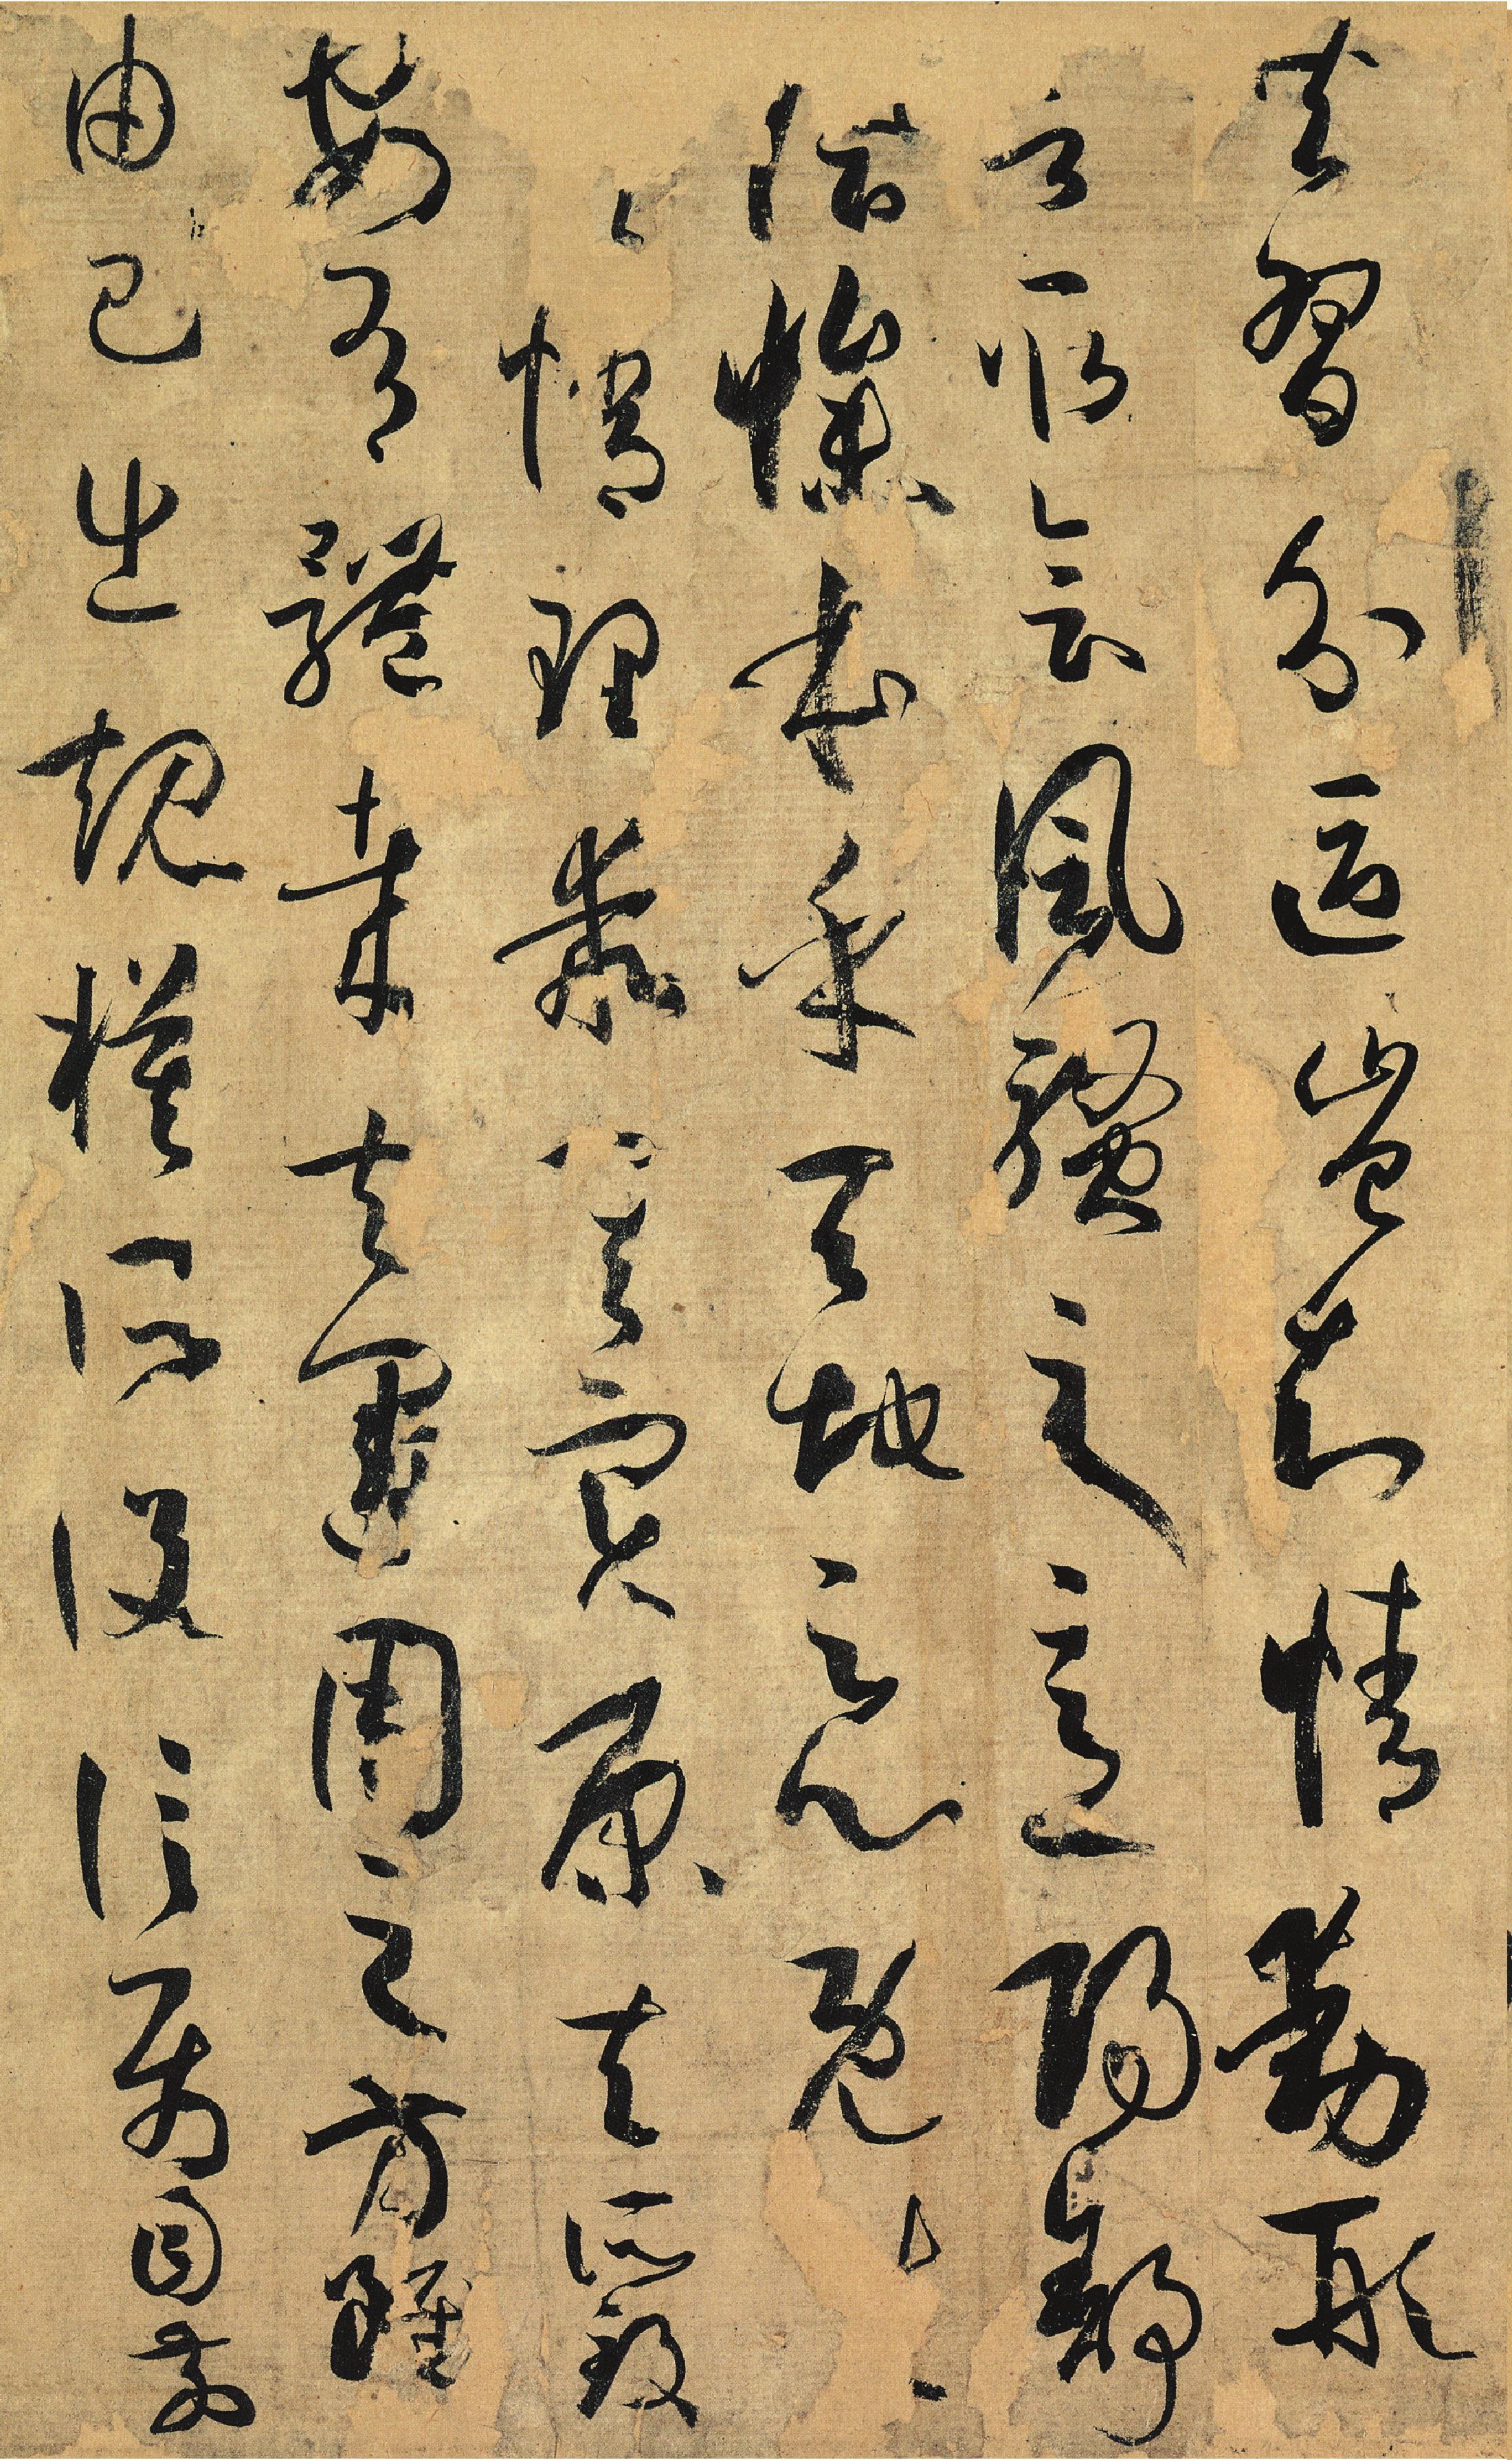 共習分區豈知情動形
言取會風騷之意陽舒
陰慘本乎天地之心既
情理乖其實原夫所致
安有體哉夫運用之方雖
由己出規模所設信屬目前